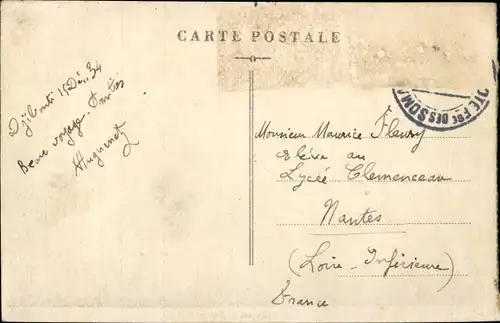 CARTE POSTALE
Djibouti 15 Déc. 34
Beau voyage.
Huguenet
TE FSE DES SOM
Monsieur Maurice Fleury
Elève au
Lycée Clemenceau
Nantes
(Loire-Inférieure)
France